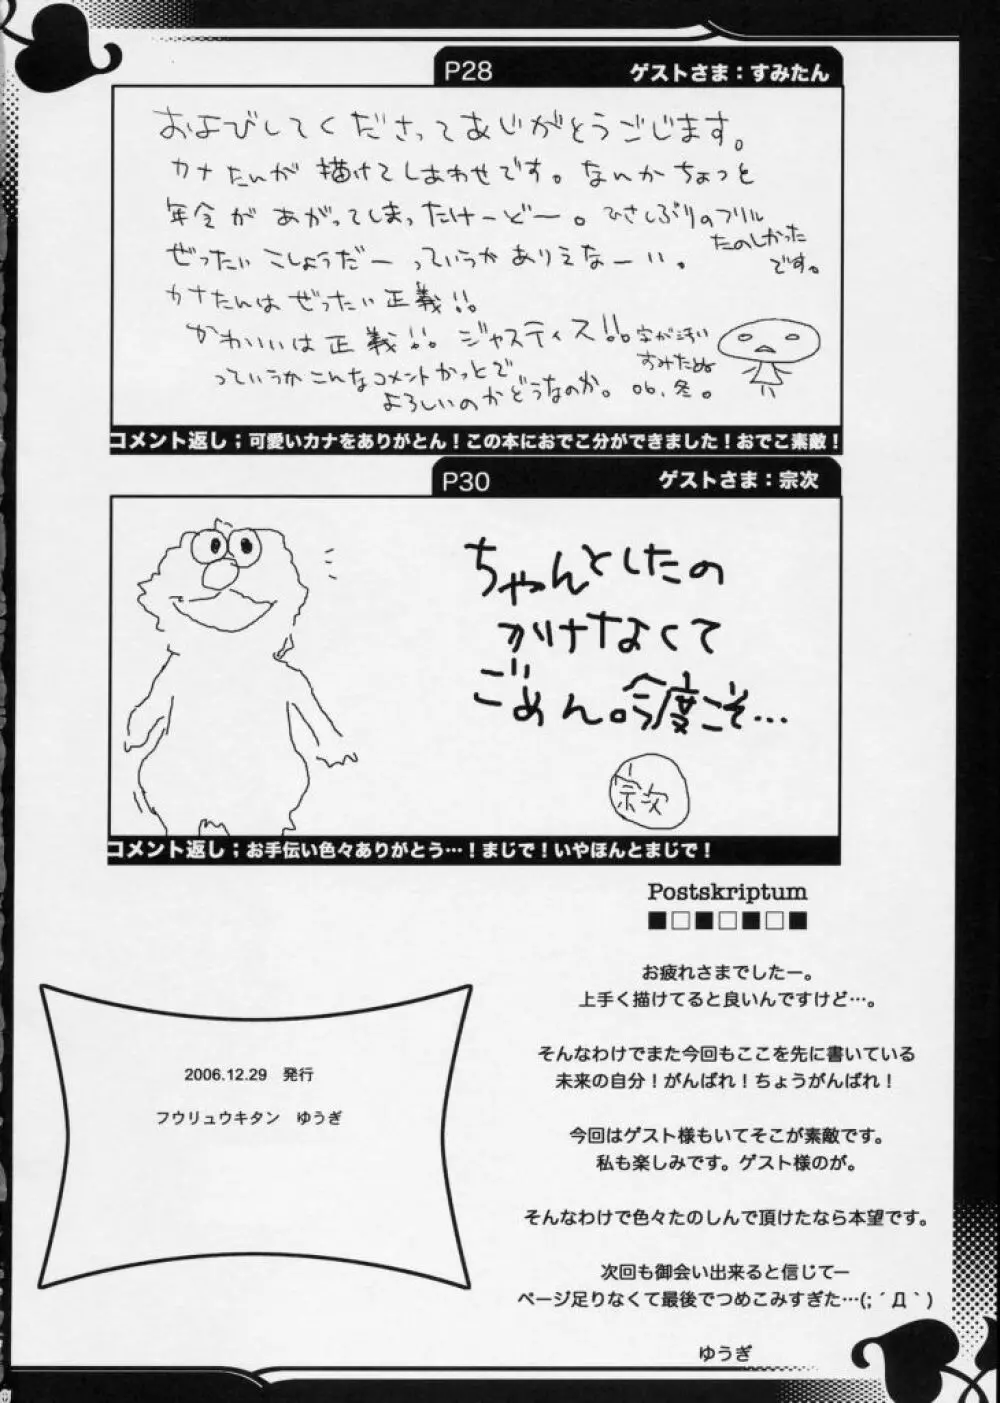 P28
ゲストさま：すみたん
およびしてくださってありがとうごじます。
カナたんが描けてしあわせです。なんかちょっと
年令があがってしまったけーどー。ひさしぶりのフリル
たのしかった
です。
ぜったいこしょうだーっていうかありえなーい。
カナたんはぜったい正義!!。
かわいいは正義!!ジャスティス!!。字が汚い
すみたぬ
っていうかこんなコメントかっとで
よろしいのかどうなのか。06.冬。
コメント返し；可愛いカナをありがとん！この本におでこ分ができました！おでこ素敵！
P30
ゲストさま：宗次
ちゃんとしたの
かけなくて
ごめん。今度こそ…
宗次
コメント返し；お手伝い色々ありがとう…！まじで！いやほんとまじで！
Postskriptum
■□■□■□■
お疲れさまでしたー。
上手く描けてると良いんですけど…。
そんなわけでまた今回もここを先に書いている
未来の自分！がんばれ！ちょうがんばれ！
今回はゲスト様もいてそこが素敵です。
私も楽しみです。ゲスト様のが。
そんなわけで色々たのしんで頂けたなら本望です。
次回も御会い出来ると信じてー
ページ足りなくて最後でつめこみすぎた…(;´Д｀)
ゆうぎ
2006.12.29　発行
フウリュウキタン　ゆうぎ